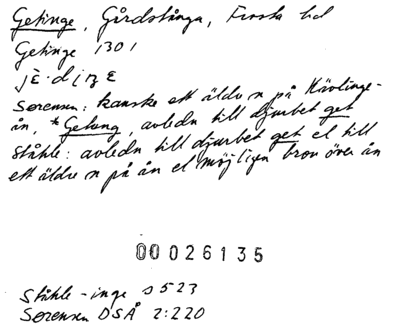 Getinge, Gårdstånga, Frosta hd
Getinge 1301
Sørensen: kanske ett äldre n på Kävlinge-
ån, *Getung, avledn till djurbet get
Ståhle: avledn till djurbet get el till
ett äldre n på ån el möjligen bron över ån
00026135
Ståhle -inge s 523
Sørensen DSÅ 2:220